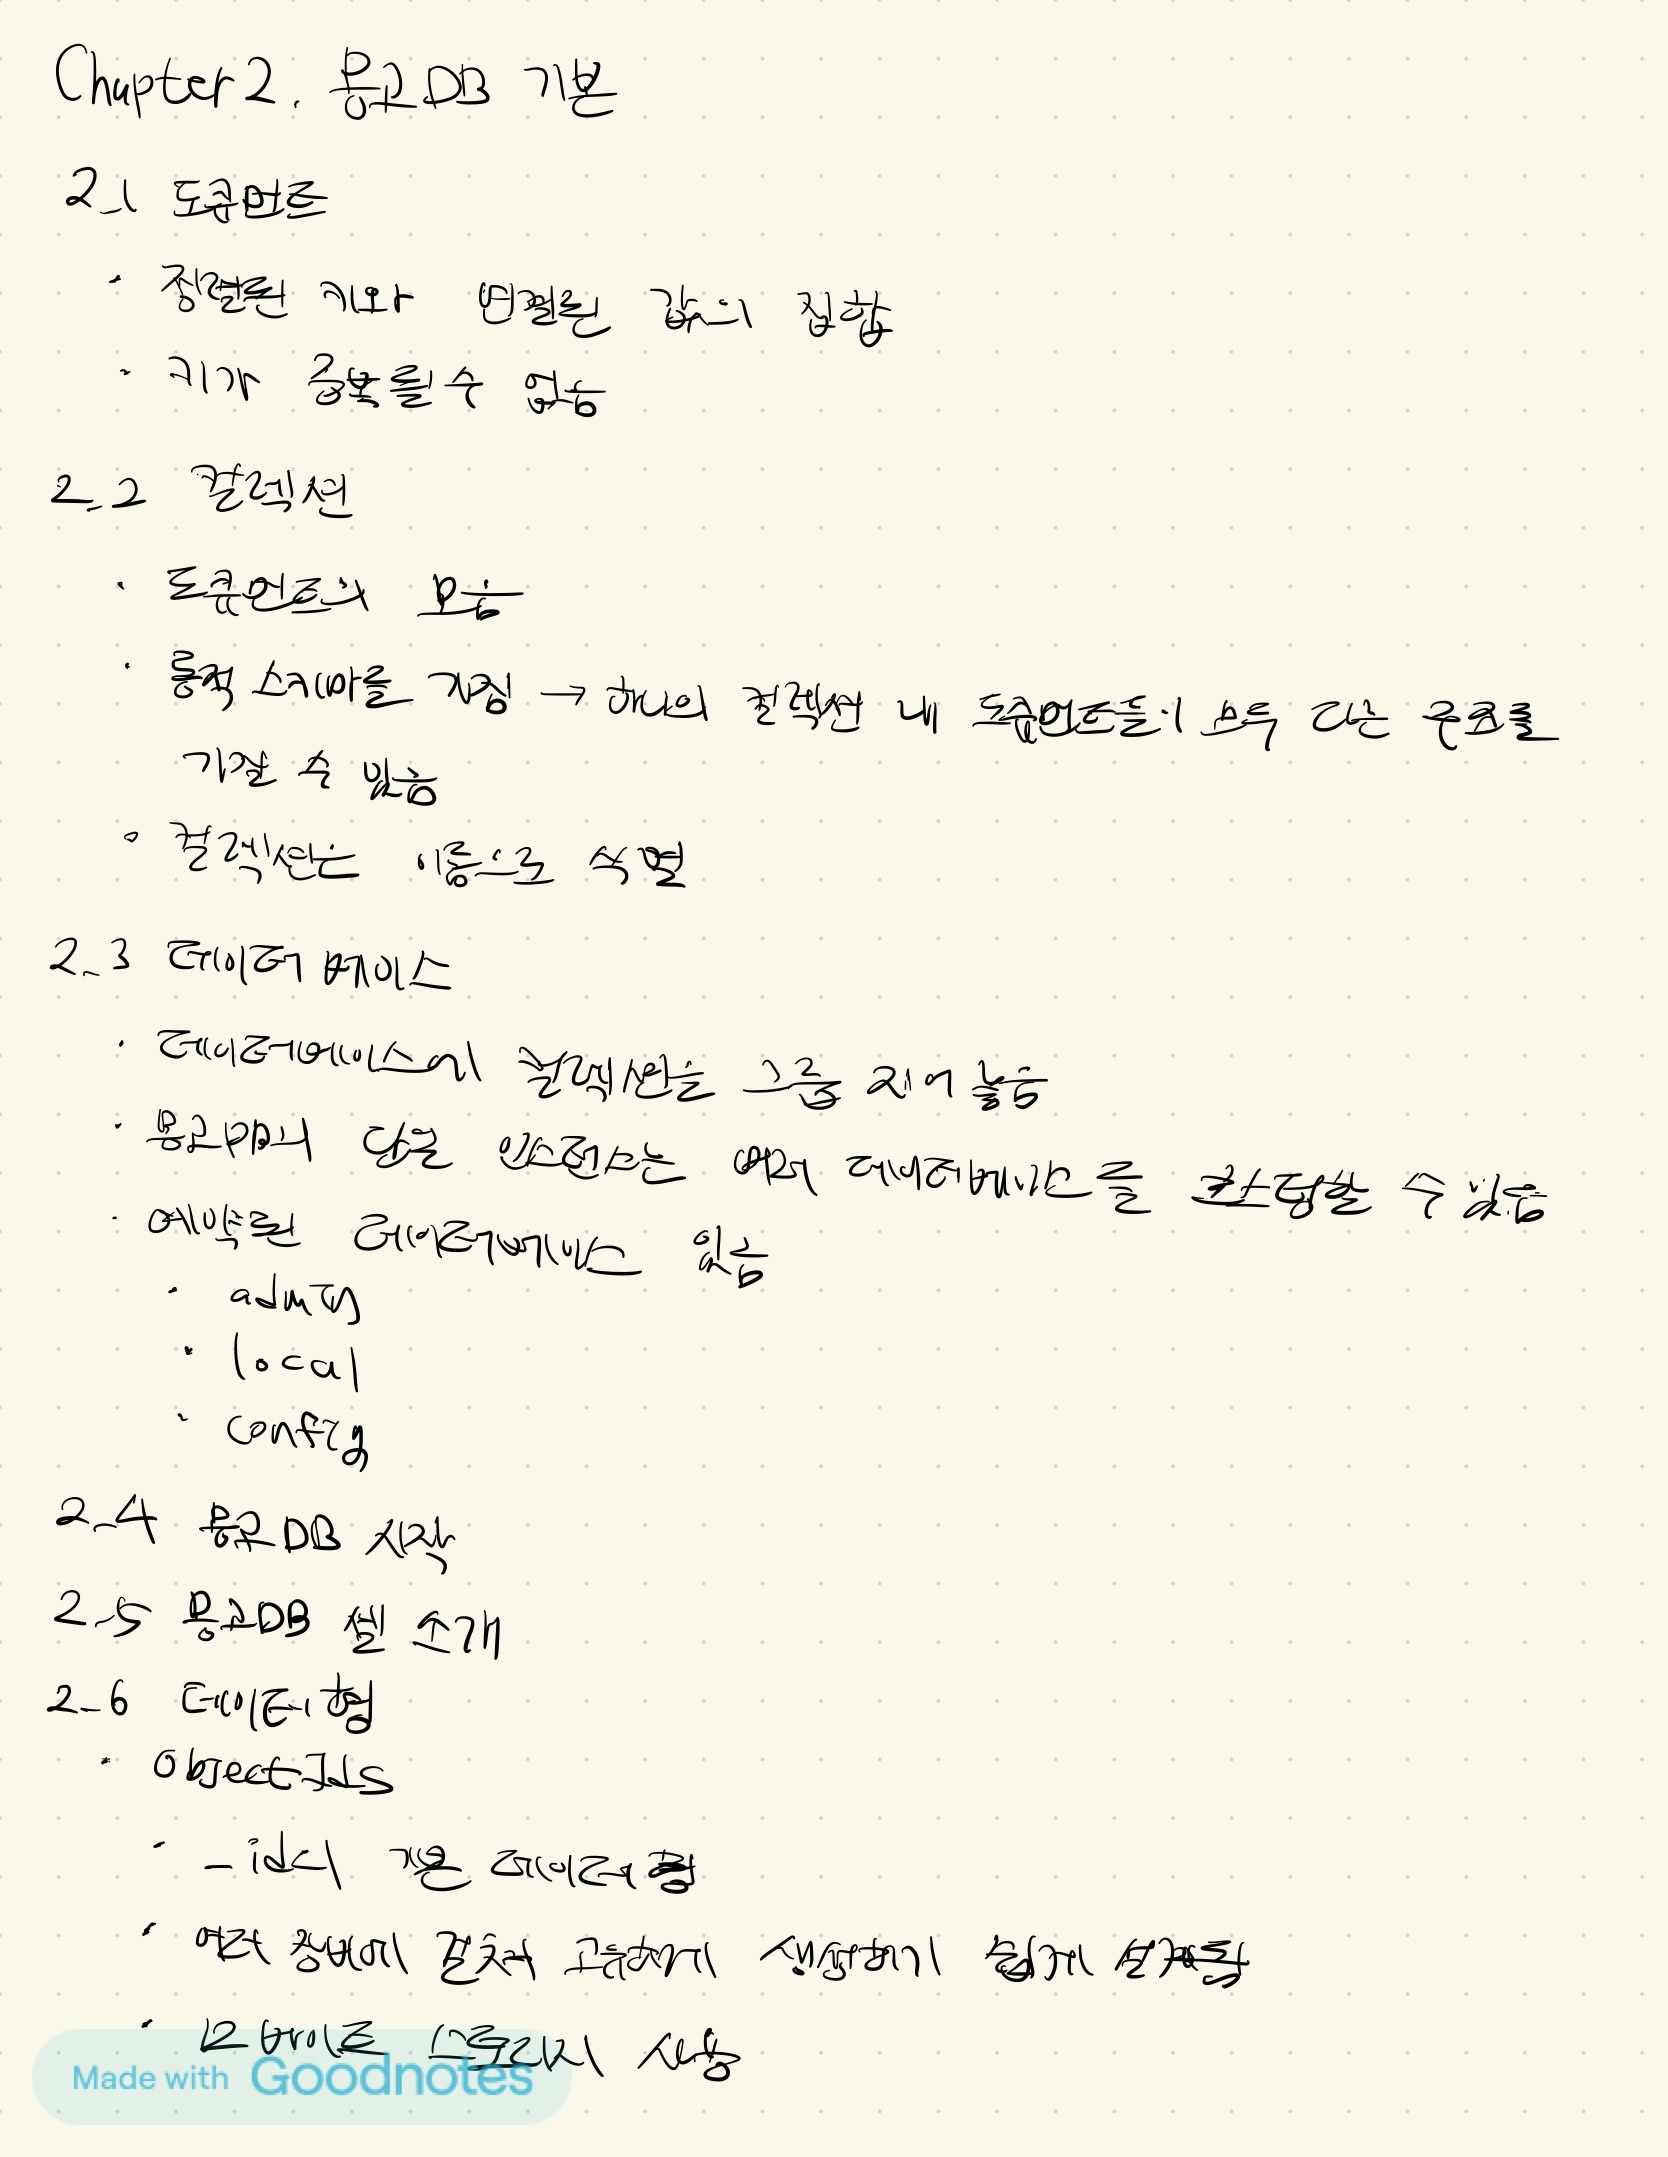 Chapter 2. 몽고DB 기본
2.1 도큐먼트
· 정렬된 키와 연결된 값의 집합
· 키가 중복될 수 없음
2.2 컬렉션
· 도큐먼트의 모음
· 동적 스키마를 가짐 → 하나의 컬렉션 내 도큐먼트들이 모두 다른 구조를
가질 수 있음
· 컬렉션은 이름으로 식별
2.3 데이터베이스
· 데이터베이스에 컬렉션을 그룹 지어 놓음
· 몽고DB의 단일 인스턴스는 여러 데이터베이스를 호스팅할 수 있음
· 예약된 데이터베이스 있음
· admin
· local
· config
2.4 몽고DB 시작
2.5 몽고DB 셸 소개
2.6 데이터형
· ObjectIds
· _id의 기본 데이터형
· 여러 장비에 걸쳐 고유하게 생성하기 쉽게 설계됨
· 12바이트 스토리지 사용
Made with Goodnotes